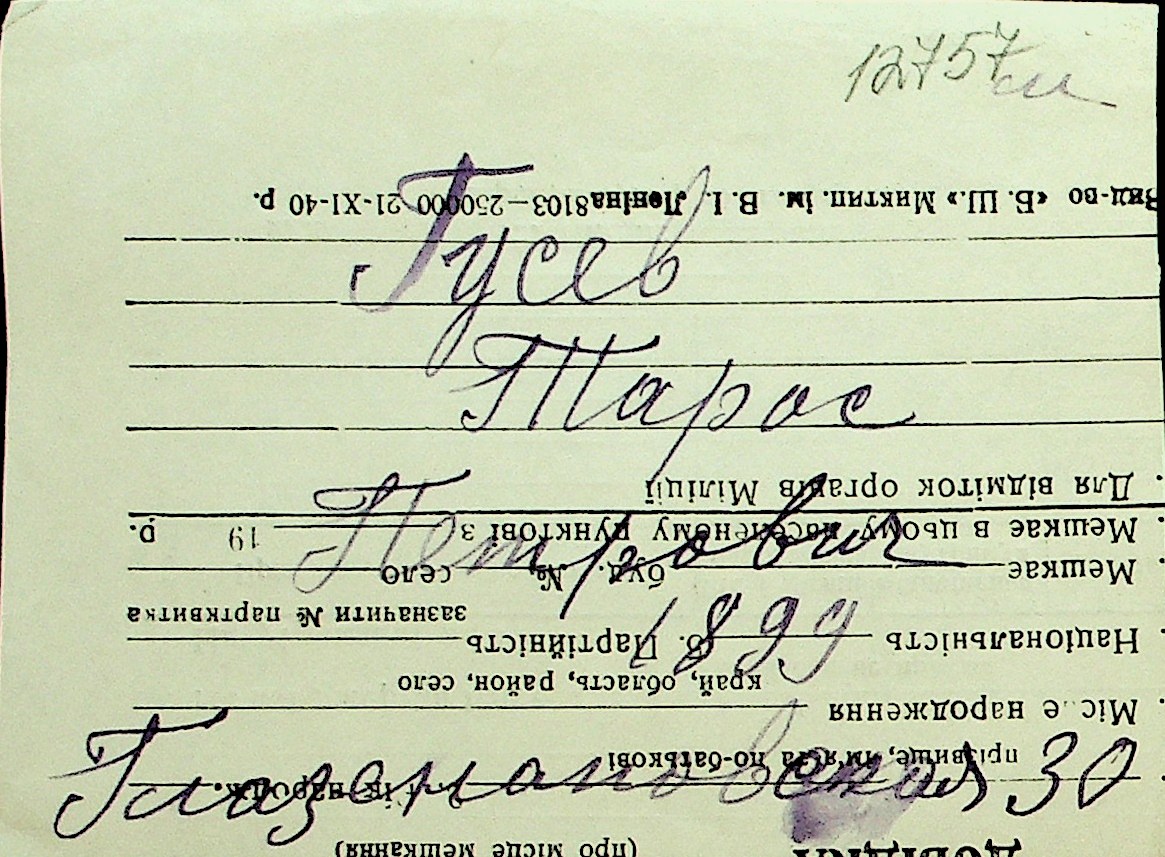 12757
Гусев
Тарас
Петрович
1899
30
ДОВІДКА
(про місце мешкання)
рік народж.
прізвище, ім'я та по-батькові
Місце народження
край, область, район, село
Національність 6. Партійність
зазначити № партквитка
Мешкає буд. № село
Мешкає в цьому населеному пунктові з 19 р.
Для відміток органів Міліції
Вид-во «Б. Ш.» Миктип. ім. В. І. Леніна 8103—250000 21-XI-40 р.